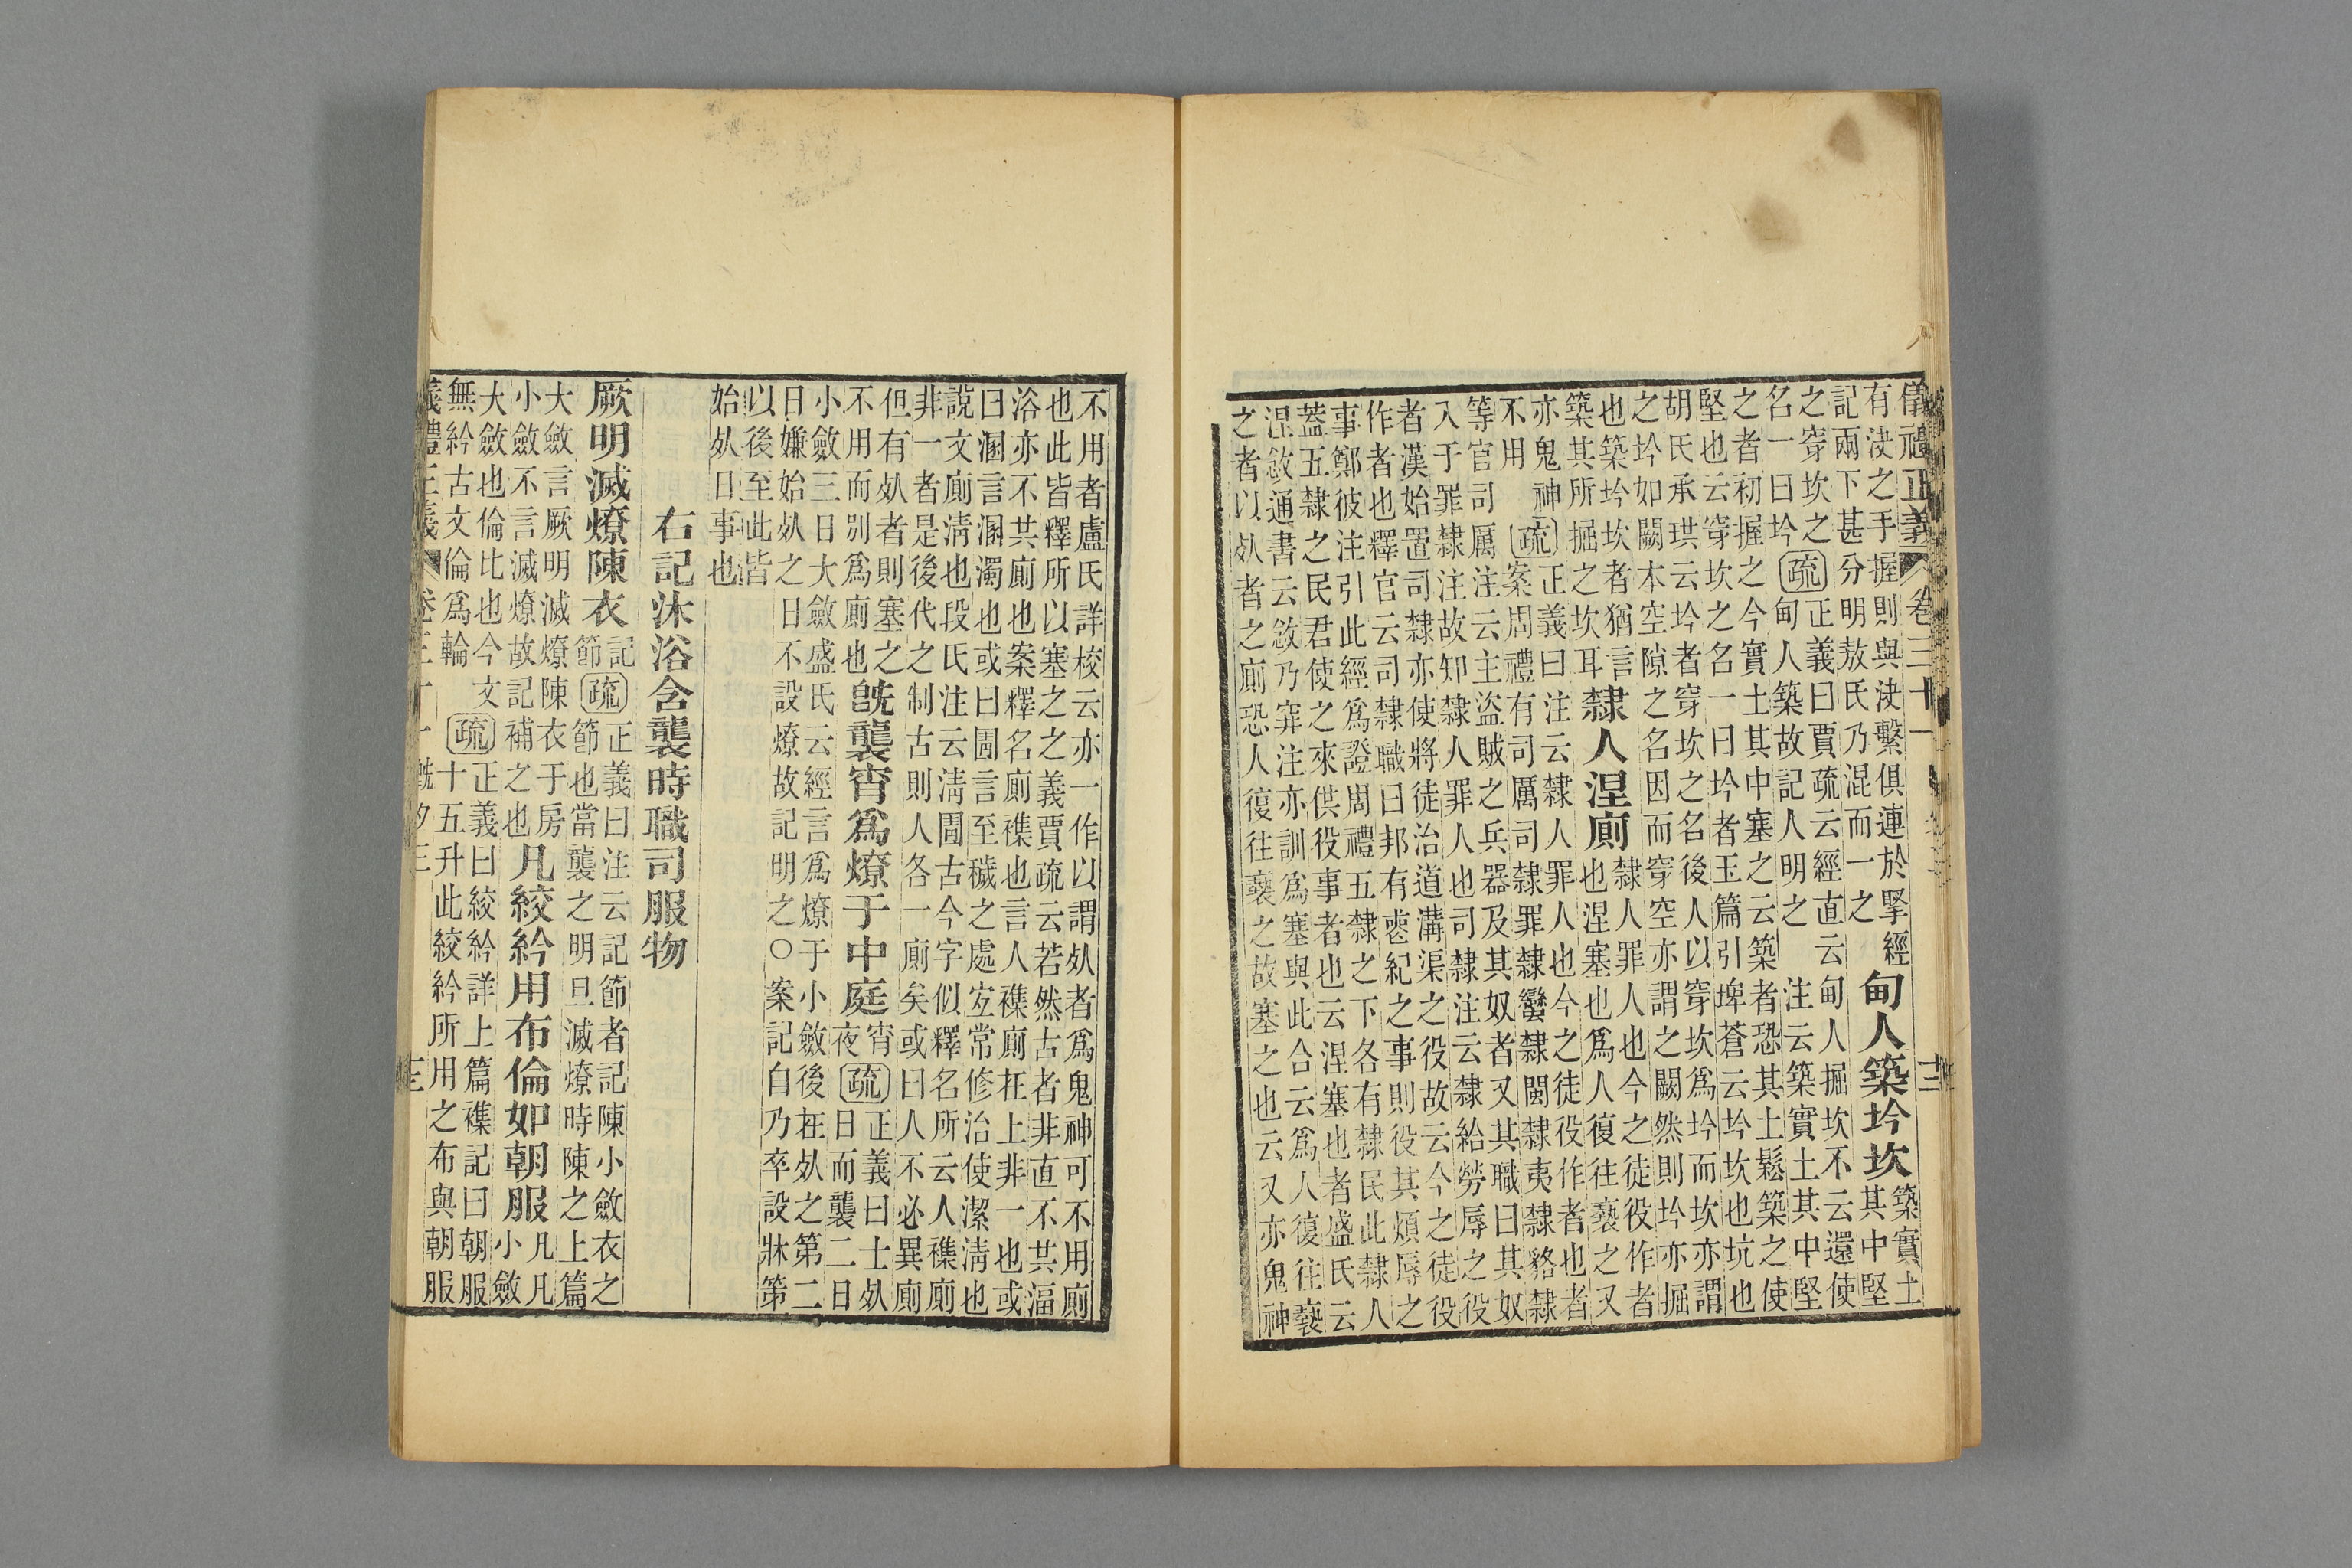 儀禮正義 卷三十一 十二
有決之手握則與決繫俱連於掔經
記兩下甚分明敖氏乃混而一之
甸人築坅坎
築實土
其中堅
之穿坎之
名一曰坅
疏
正義曰賈疏云經直云甸人掘坎不云還使
甸人築故記人明之 注云築實土其中堅
之者初握之今實土其中塞之云築者恐其土鬆築之使
堅也云穿坎之名一曰坅者玉篇引埤蒼云坅坎也坑也
胡氏承珙云坅者穿坎之名後人以穿坎爲坅而坎亦謂
之坅如闕本空隙之名因而穿空亦謂之闕然則坅亦掘
也築坅坎者猶言
築其所掘之坎耳
隸人涅廁
隸人罪人也今之徒役作者
也涅塞也爲人復往褻之又
亦鬼神
不用
疏
正義曰注云隸人罪人也今之徒役作者也者
案周禮有司厲司隸罪隸蠻隸閩隸夷隸貉隸
等官司厲注云主盜賊之兵器及其奴者又其職曰其奴
入于罪隸注故知隸人罪人也司隸注云隸給勞辱之役
者漢始置司隸亦使將徒治道溝渠之役故云今之徒役
作者也釋官云司隸職曰邦有喪紀之事則役其煩辱之
事鄭彼注引此經爲證周禮五隸之下各有隸民此隸人
蓋五隸之民君使之來供役事者也云涅塞也者盛氏云
涅敜通書云敜乃穽注亦訓爲塞與此合云爲人復往褻
之者以㱙者之廁恐人復往褻之故塞之也云又亦鬼神
不用者盧氏詳校云亦一作以謂㱙者爲鬼神可不用廁
也此皆釋所以塞之之義賈疏云若然古者非直不共湢
浴亦不共廁也案釋名廁襍也言人襍廁在上非一也或
曰溷言溷濁也或曰圊言至穢之處宜常修治使潔清也
說文廁清也段氏注云清圊古今字似釋名所云人襍廁
非一者是後代之制古則人各一廁矣或曰人不必異廁
但有㱙者則塞之
不用而別爲廁也
旣襲宵爲燎于中庭
宵
夜
疏
正義曰士㱙
日而襲二日
小斂三日大斂盛氏云經言爲燎于小斂後在㱙之第二
日嫌始㱙之日不設燎故記明之○案記自乃卒設牀第
以後至此皆
始㱙日事也
右記沐浴含襲時職司服物
厥明滅燎陳衣
記
節
疏
正義曰注云記節者記陳小斂衣之
節也當襲之明旦滅燎時陳之上篇
大斂言厥明滅燎陳衣于房
小斂不言滅燎故記補之也
凡絞紟用布倫如朝服
凡凡
小斂
大斂也倫比也今文
無紟古文倫爲輪
疏
正義曰絞紟詳上篇襍記曰朝服
十五升此絞紟所用之布與朝服
儀禮正義 卷三十一 旣夕三 十三